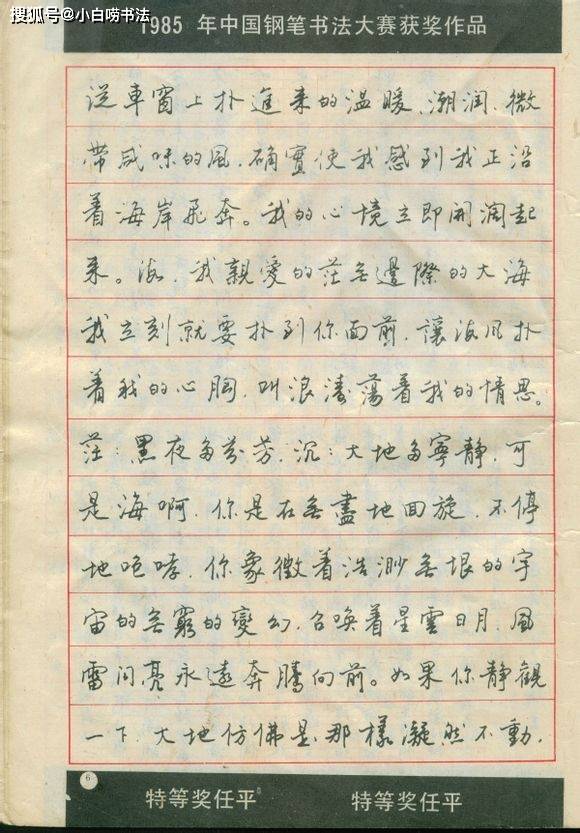 搜狐号@小白唠书法
1985 年中国钢笔书法大赛获奖作品
從車窗上扑進来的温暖、潮润、微
带咸味的風,确實使我感到我正沿
着海岸飛奔。我的心境立即開阔起
来。海,我親愛的茫無邊際的大海
我立刻就要扑到你面前,讓海风扑
着我的心胸,叫浪涛蕩着我的情思。
茫:黑夜多芬芳,沉:大地多寧静,可
是海啊,你是在無盡地回旋,不停
地咆哮,你象徵着浩渺無垠的宇
宙的無窮的變幻,召唤着星雲日月,風
雷闪亮永遠奔騰向前。如果你静觀
一下,大地仿佛是那樣凝然不動,
6
特等奖任平 特等奖任平